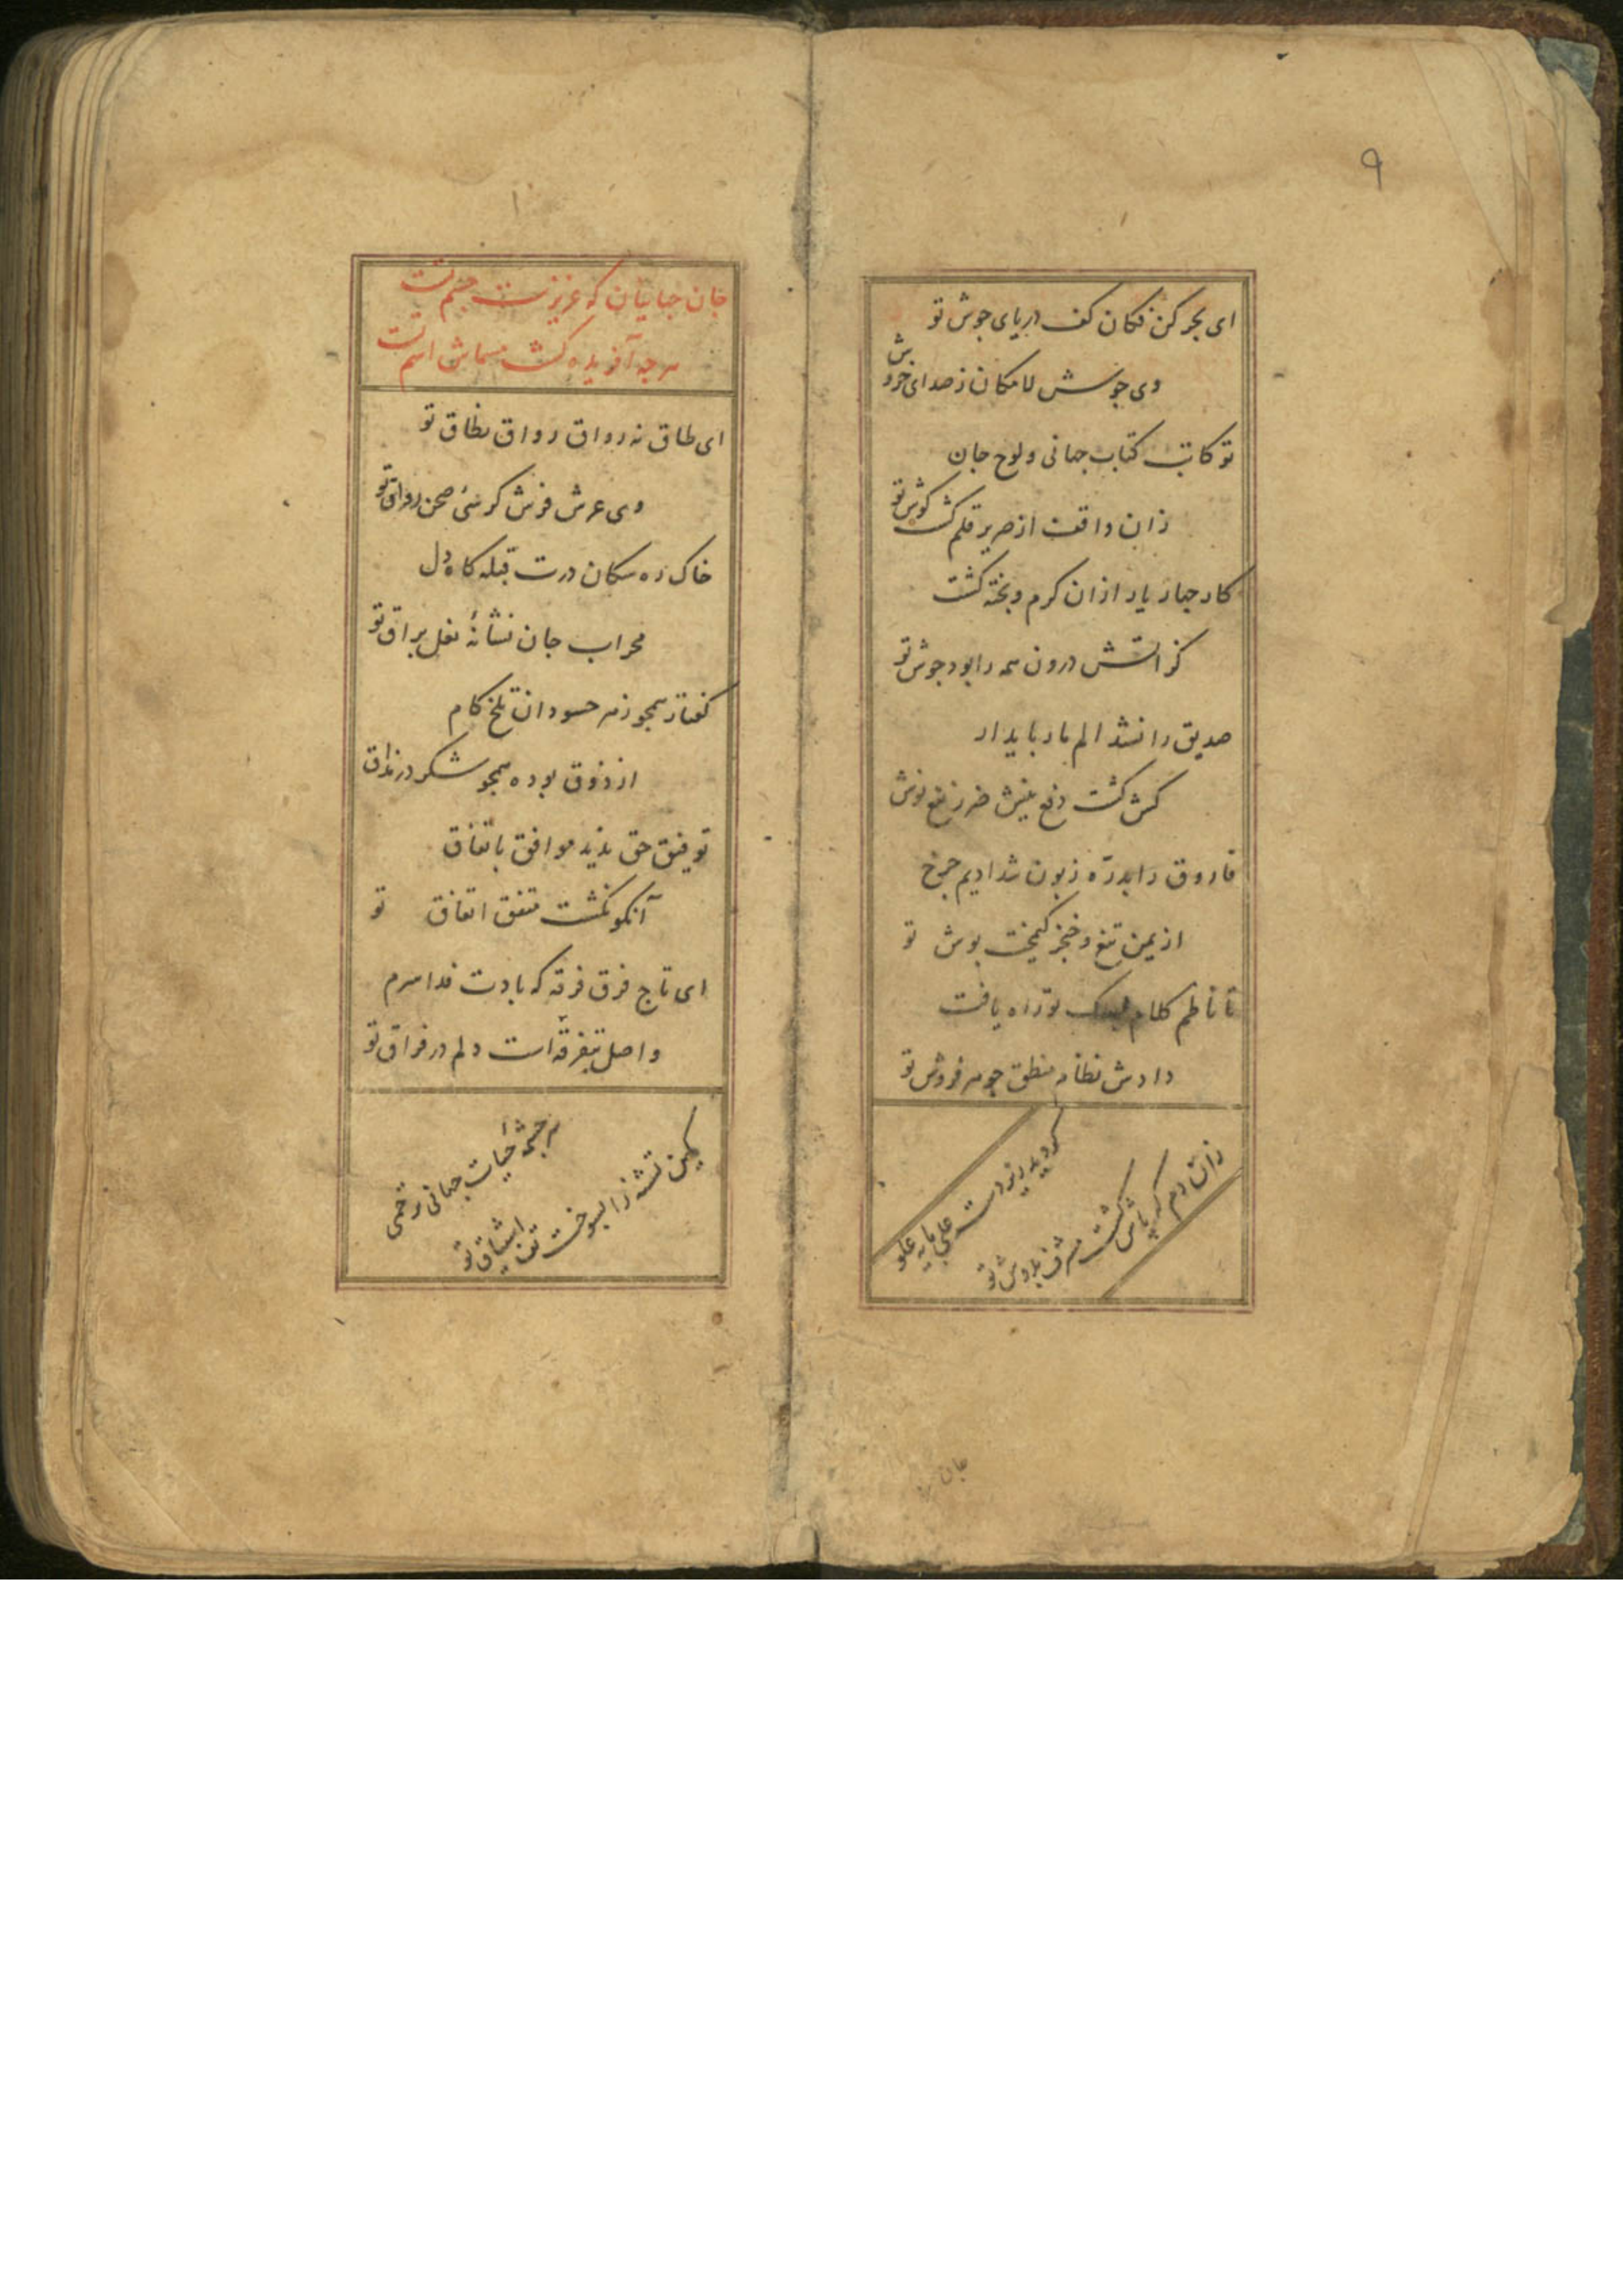 ۹
ای بحر کن فکان کف دریای جوش تو
وی جوش لامکان ز صدای خروش
تو کاتب کتاب جهانی و لوح جان
زان واقفت از صریر قلم گشت گوش تو
کار جهان زیاد ازان گرم و پخته گشت
کز آتش درون همه را بود جوش تو
صدیق را نشد الم مار پایدار
کش گشت دفع نیش ضرر نفع نوش
فاروق را بدرّه زبون شد ادیم چرخ
از یمن تیغ و خنجر کیمخت پوش تو
تا ناظم کلام تو راه یافت
دادش نظام منطق جوهر فروش تو
کرو پدید بر دست علی پایه علو
زان دم که پاش گشت مشرف بدوش تو
جان
جان جهانیان که عزیزست جسم تست
هر چه آفریده گشت مسماش اسم تست
ای طاق نه رواق رواق نطاق تو
وی عرش فرش کرسی صحن رواق تو
خاک ره سکان درت قبله گاه دل
محراب جان نشانهٔ نعل براق تو
گفتار همچو زهر حسودان تلخ کام
از ذوق بوده همچو شکر در مذاق
توفیق حق ندید موافق باتفاق
آنکو نگشت متفق اتفاق تو
ای تاج فرق فرقه که بادت فدا سرم
واصل بتفرقه است دلم در فراق تو
سرچشمهٔ حیات جهانی و رحمی
کین تشنه را بسوخت تف اشتیاق تو